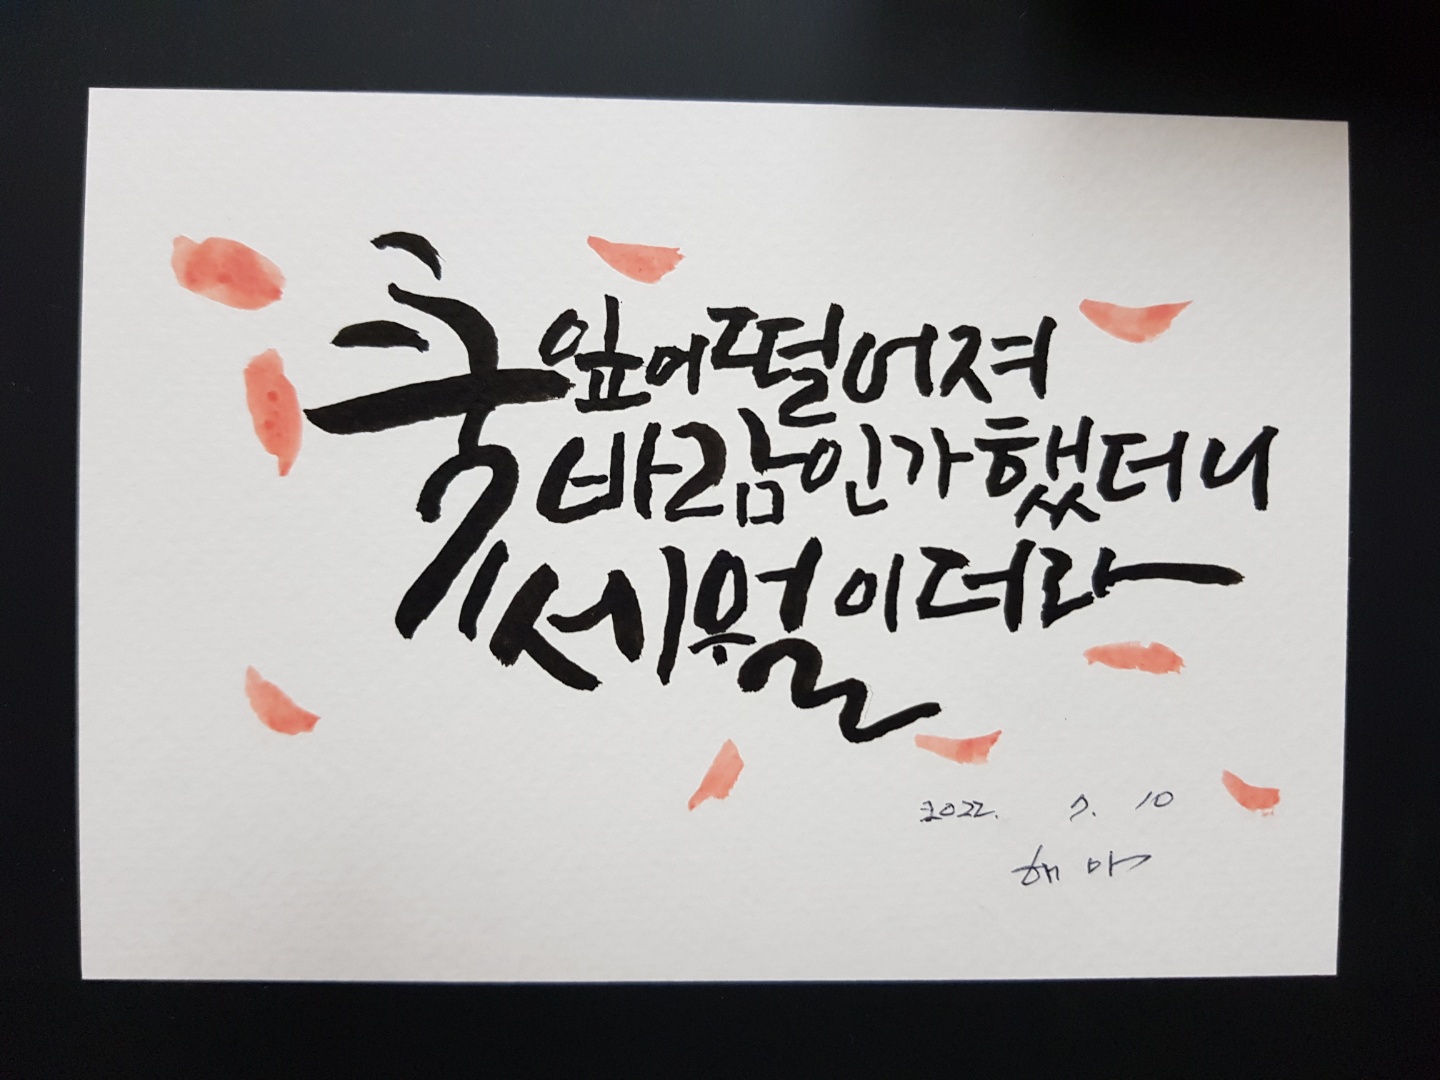 꽃잎이 떨어져
바람인가 했더니
세월이더라
2022. 7. 10
해 마